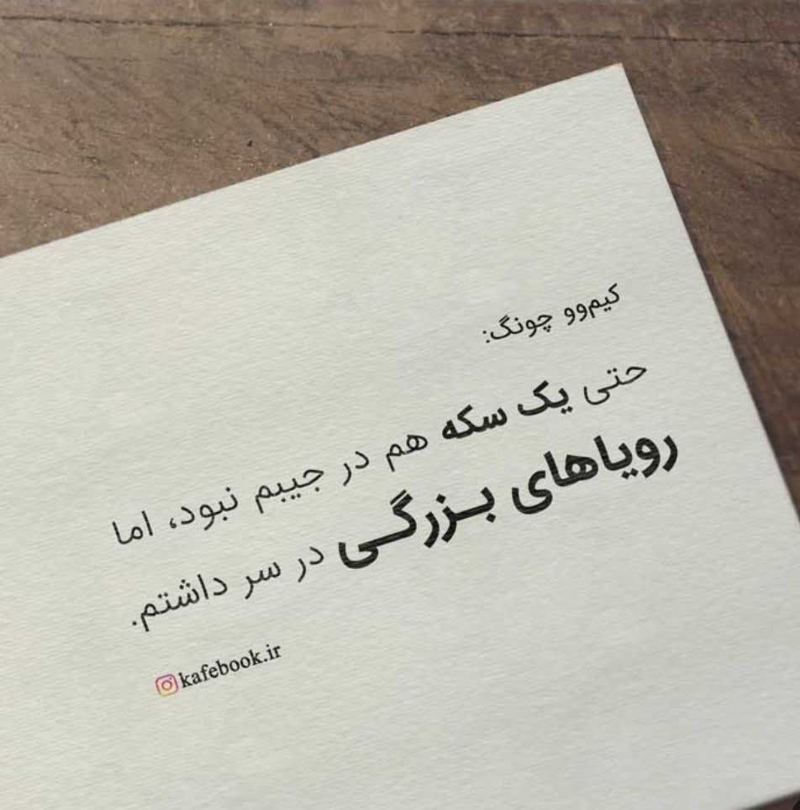 کیم‌وو چونگ:
حتی یک سکه هم در جیبم نبود، اما
رویاهای بزرگی در سر داشتم.
kafebook.ir